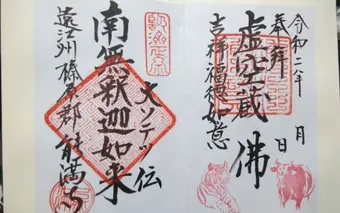 令和二年 月 日
奉拝
虚空蔵佛
吉祥福徳如意
大ソテツ伝
南無釈迦如来
遠江州榛原郡能満寺